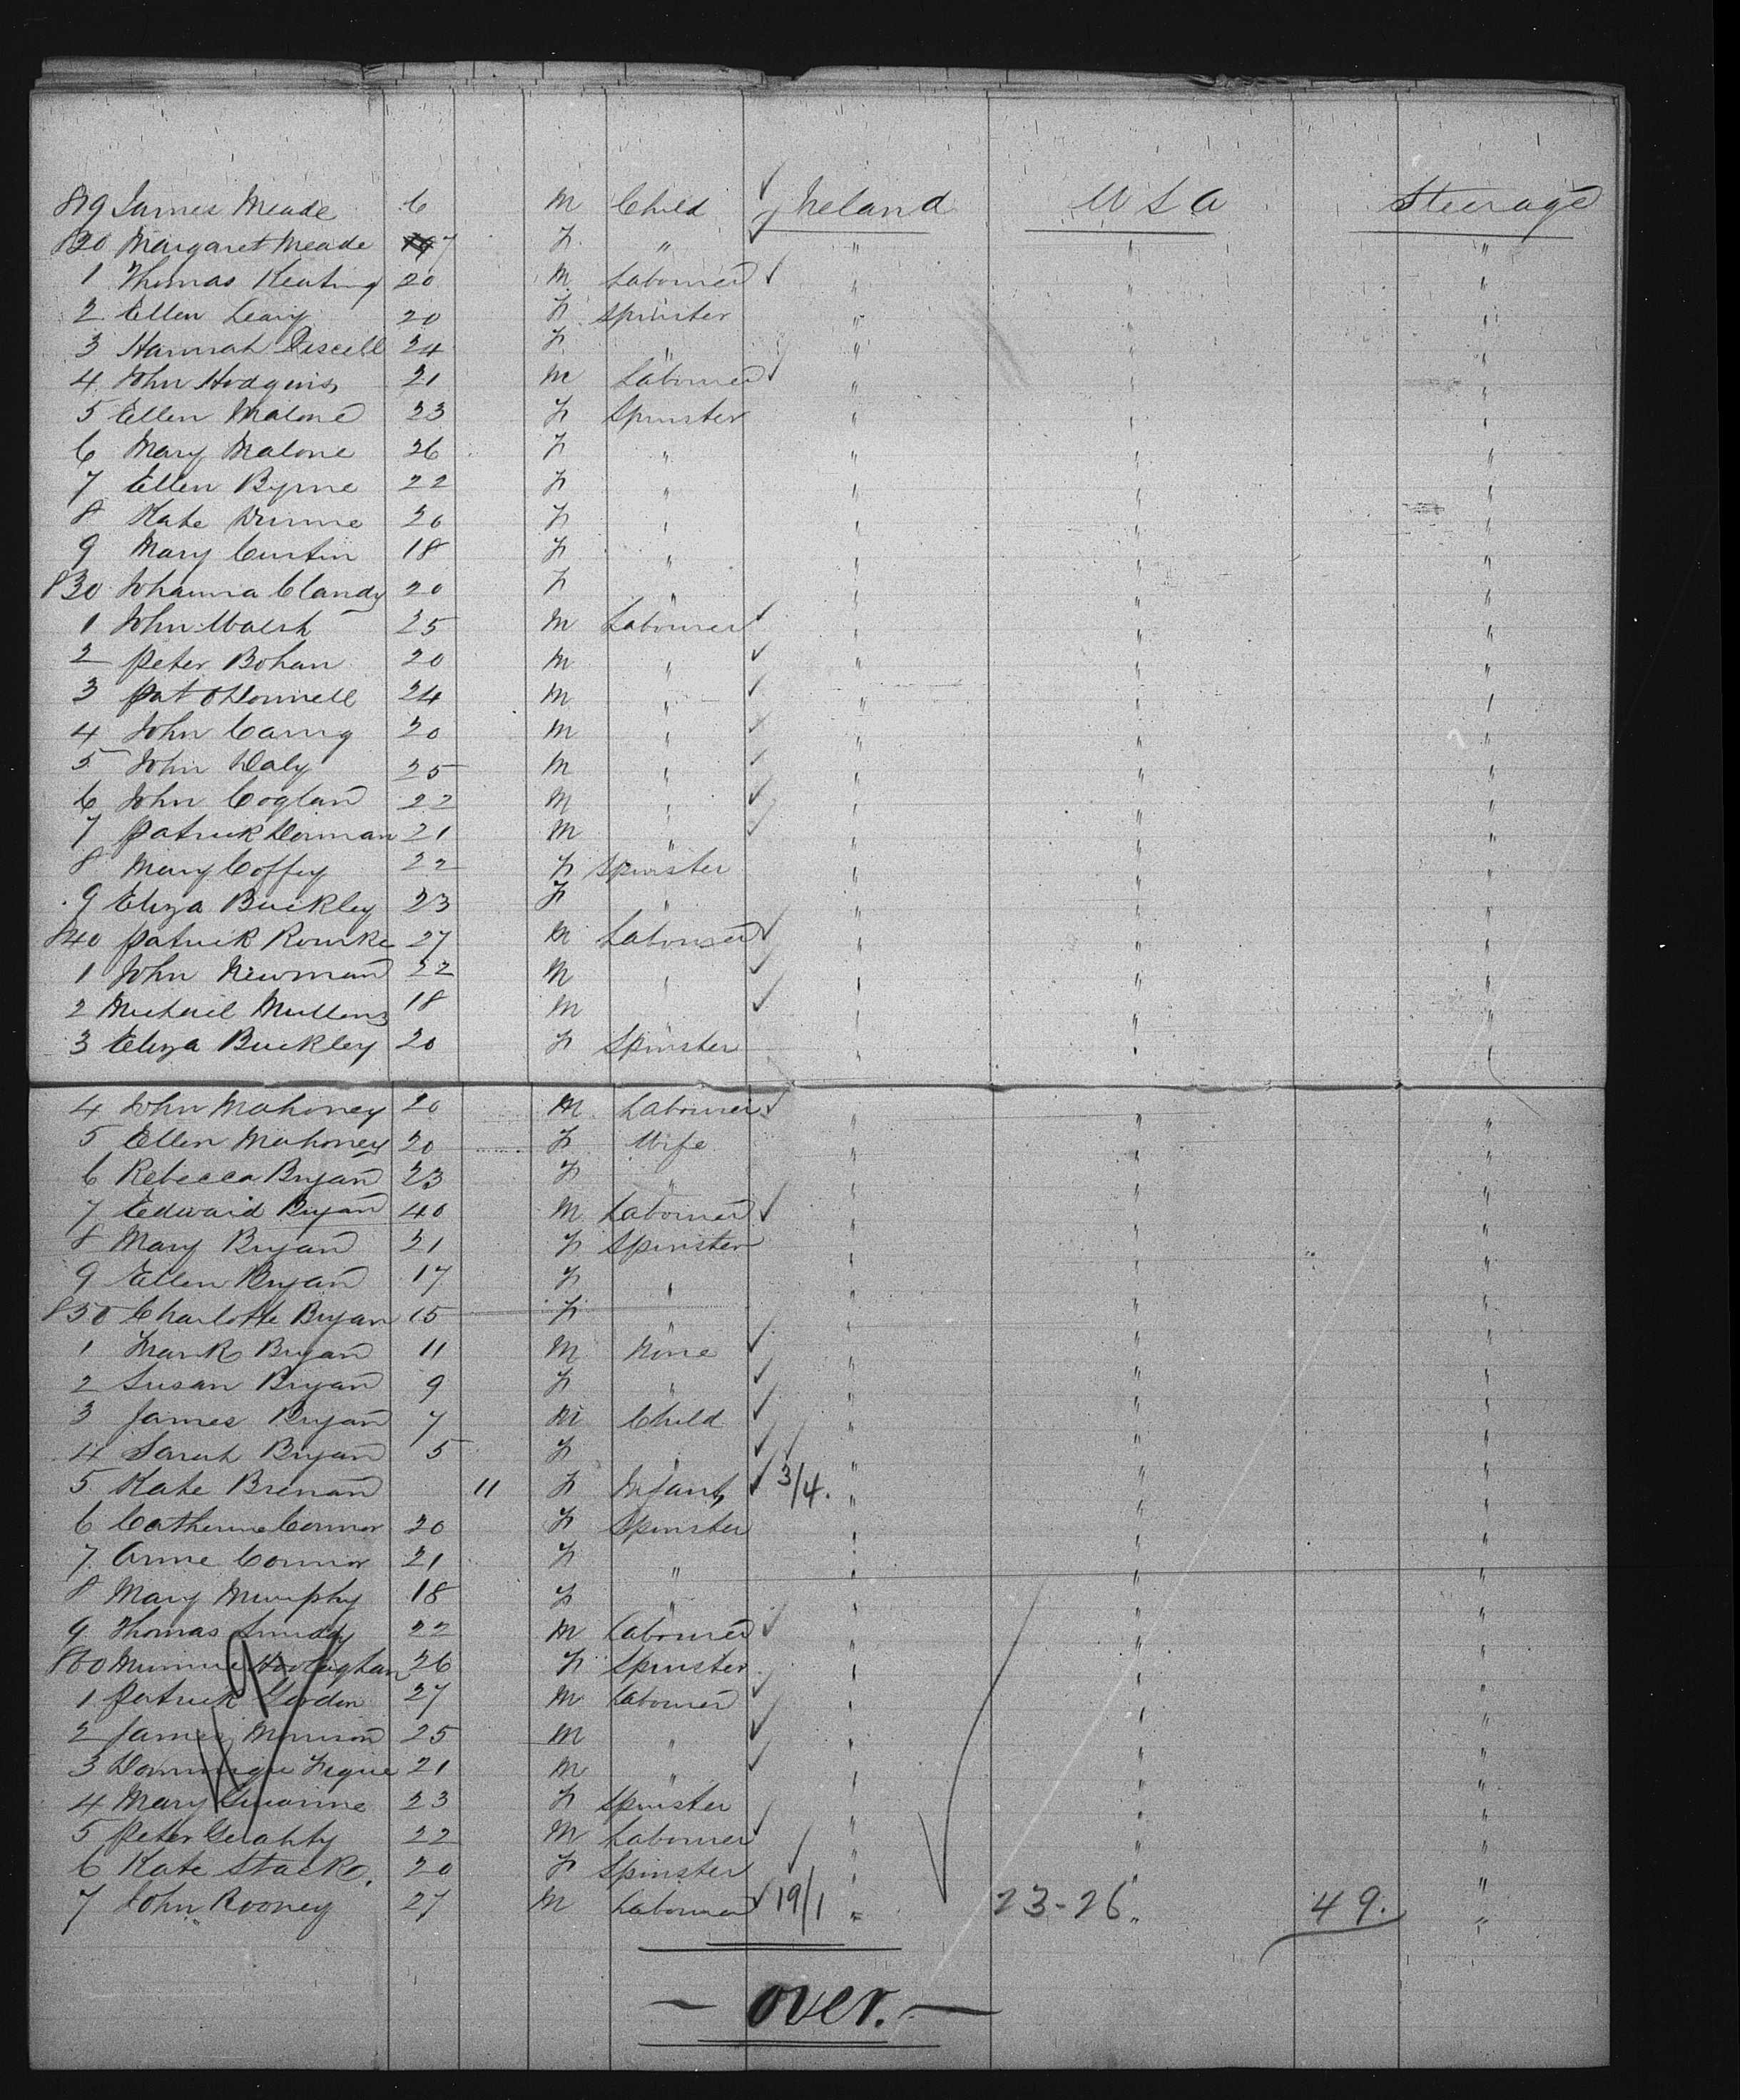 819 James Meade 6 M Child Ireland U S A Steerage
820 Margaret Meade 7 F " " " "
1 Thomas Keating 20 M Labourer " " "
2 Ellen Leary 20 F Spinster " " "
3 Hannah 24 F " " " "
4 John Hodgins 21 M Labourer " " "
5 Ellen Malone 23 F Spinster " " "
6 Mary Malone 26 F " " " "
7 Ellen Byrne 22 F " " " "
8 Kate Dunne 20 F " " " "
9 Mary Curtin 18 F " " " "
830 Johanna Clandy 20 F " " " "
1 John Walsh 25 M Labourer " " "
2 Peter Bohan 20 M " " " "
3 Pat O'Donnell 24 M " " " "
4 John 20 M " " " "
5 John Daly 25 M " " " "
6 John Coglan 22 M " " " "
7 Patrick Dorman 21 M " " " "
8 Mary Coffey 22 F Spinster " " "
9 Eliza Buckley 23 F " " " "
840 Patrick Rourke 27 M Labourer " " "
1 John Newman 22 M " " " "
2 Michael Mullens 18 M " " " "
3 Eliza Buckley 20 F Spinster " " "
4 John Mahoney 20 M Labourer " " "
5 Ellen Mahoney 20 F Wife " " "
6 Rebecca Bryan 23 F " " " "
7 Edward Bryan 40 M Labourer " " "
8 Mary Bryan 21 F Spinster " " "
9 Ellen Bryan 17 F " " " "
850 Charlotte Bryan 15 F " " " "
1 Mark Bryan 11 M None " " "
2 Susan Bryan 9 F " " " "
3 James Bryan 7 M Child " " "
4 Sarah Bryan 5 F " " " "
5 Kate Brenan 11 F Infant 3/4. " " "
6 Catherine Connor 20 F Spinster " " "
7 Anne Connor 21 F " " " "
8 Mary Murphy 18 F " " " "
9 Thomas 22 M Labourer " " "
860 Minnie 26 F Spinster " " "
1 Patrick 27 M Labourer " " "
2 James Morrison 25 M " " " "
3 21 M " " " "
4 Mary 23 F Spinster " " "
5 Peter Gerahty 22 M Labourer " " "
6 Kate Stack. 20 F Spinster " " "
7 John Rooney 27 M Labourer 19/1 " 23-26 " 49. "
— over. —